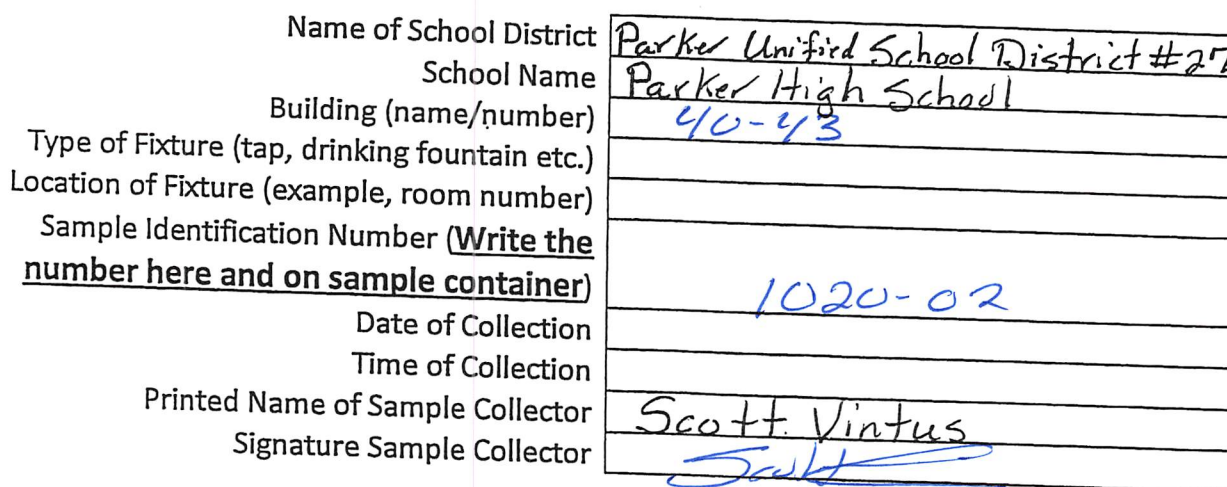 Name of School District Parker Unified School District #27
School Name Parker High School
Building (name/number) 40-43
Type of Fixture (tap, drinking fountain etc.)
Location of Fixture (example, room number)
Sample Identification Number (Write the
number here and on sample container) 1020-02
Date of Collection
Time of Collection
Printed Name of Sample Collector Scott Vintus
Signature Sample Collector Scott